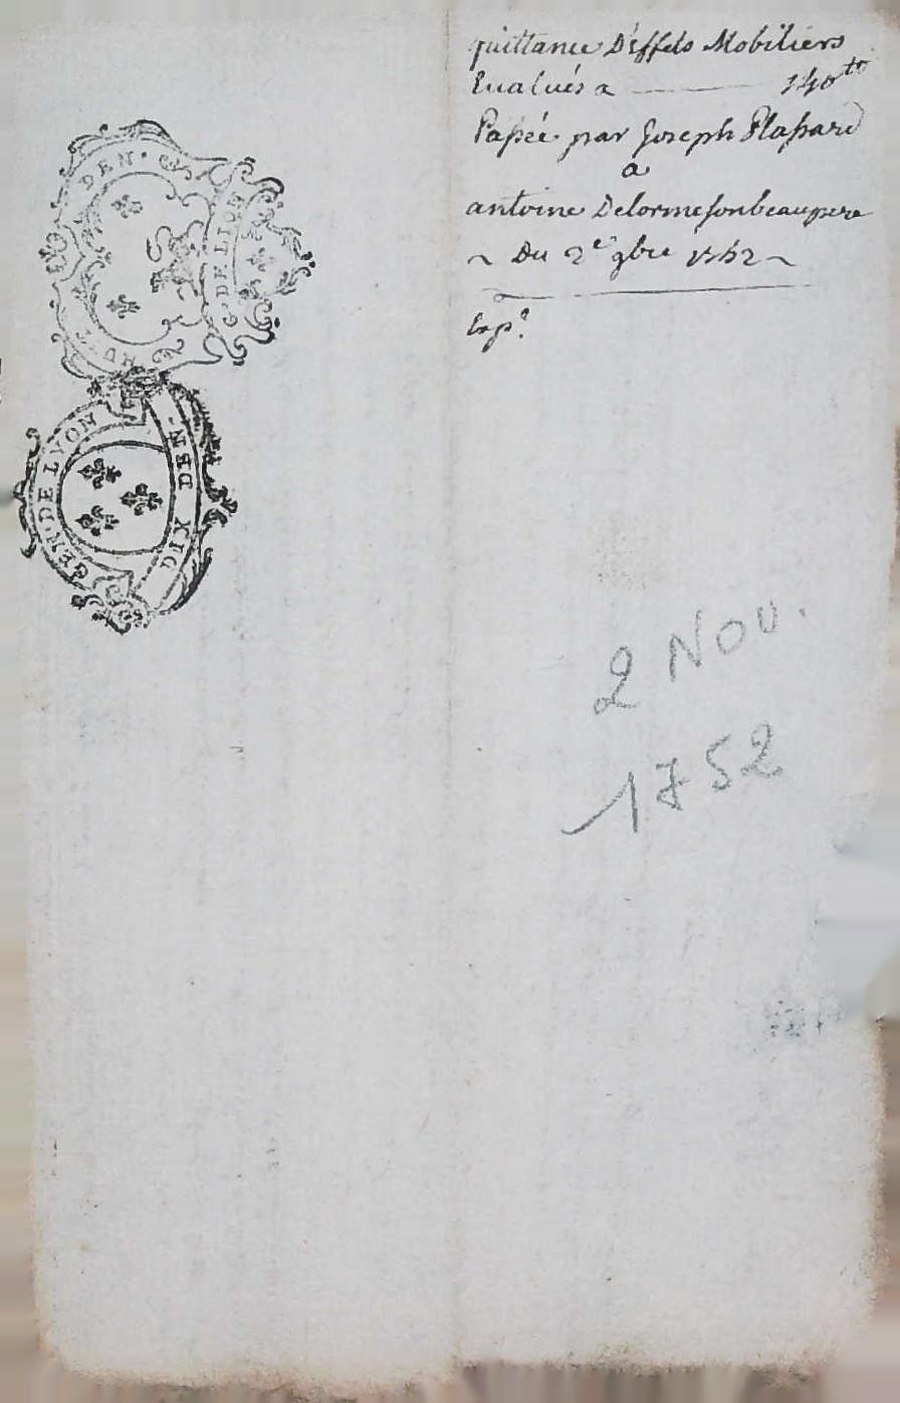 quittance D'Effets Mobiliers
Evalués a 140
Passée par Joseph Plassard
a
antoine Delorme son beau pere
~ Du 2e 9bre 1752 ~
Exp.
HUIT DEN.
G. DE LION
GEN. DE LYON
DIX DEN.
2 NOV.
1752